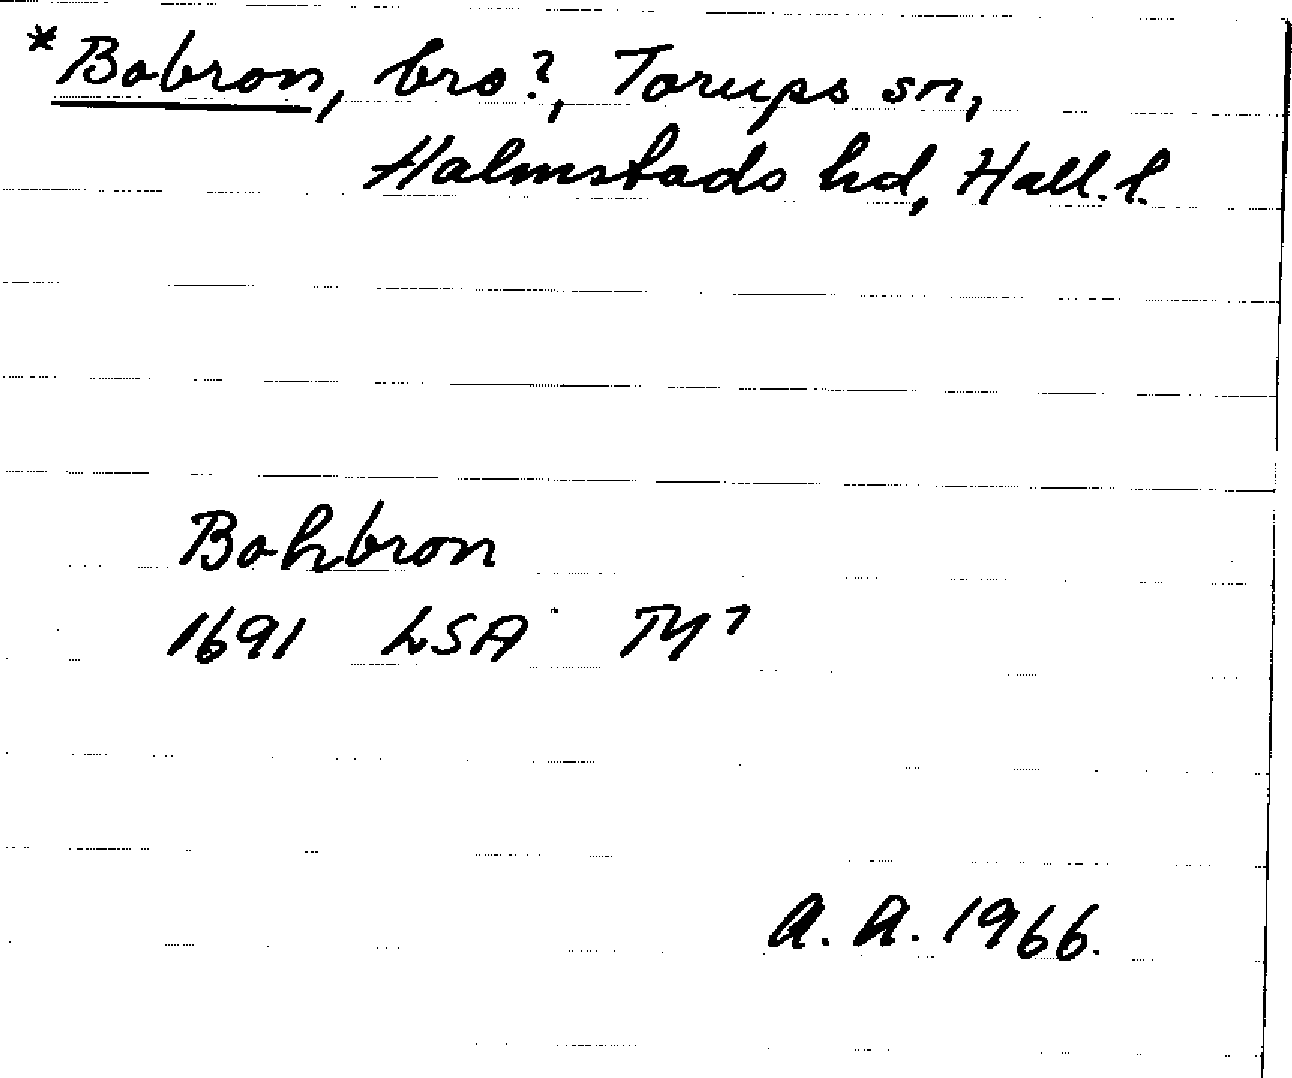 *Bobron, bro?, Torups sn,
Halmstads hd, Hall. l.
Bohbron
1691 LSA TY7
A. A. 1966.